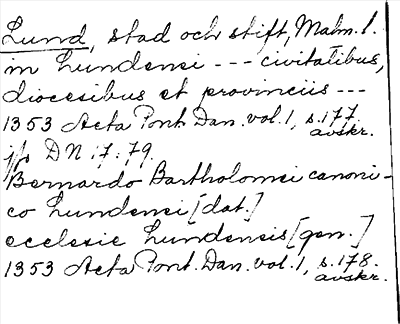 Lund, stad och stift, Malm. l.
in Lundensi --- civitatibus,
diocesibus et provinciis ---
1353 Acta Pont. Dan. vol. 1, s. 177.
avskr.
jfr DN :7: 79.
Bernardo Bartholomei canoni-
co Lundensi [dat.]
ecclesie Lundensis [gen.]
1353 Acta Pont. Dan. vol. 1, s. 178.
avskr.